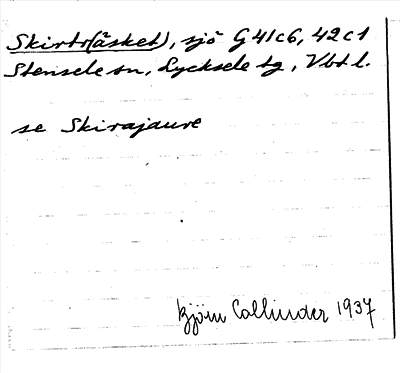 Skirtr(åsket), sjö G 41c6, 42c1
Stensele sn, Lycksele tg, Vbt l.
se Skirajaure
Björn Collinder 1937